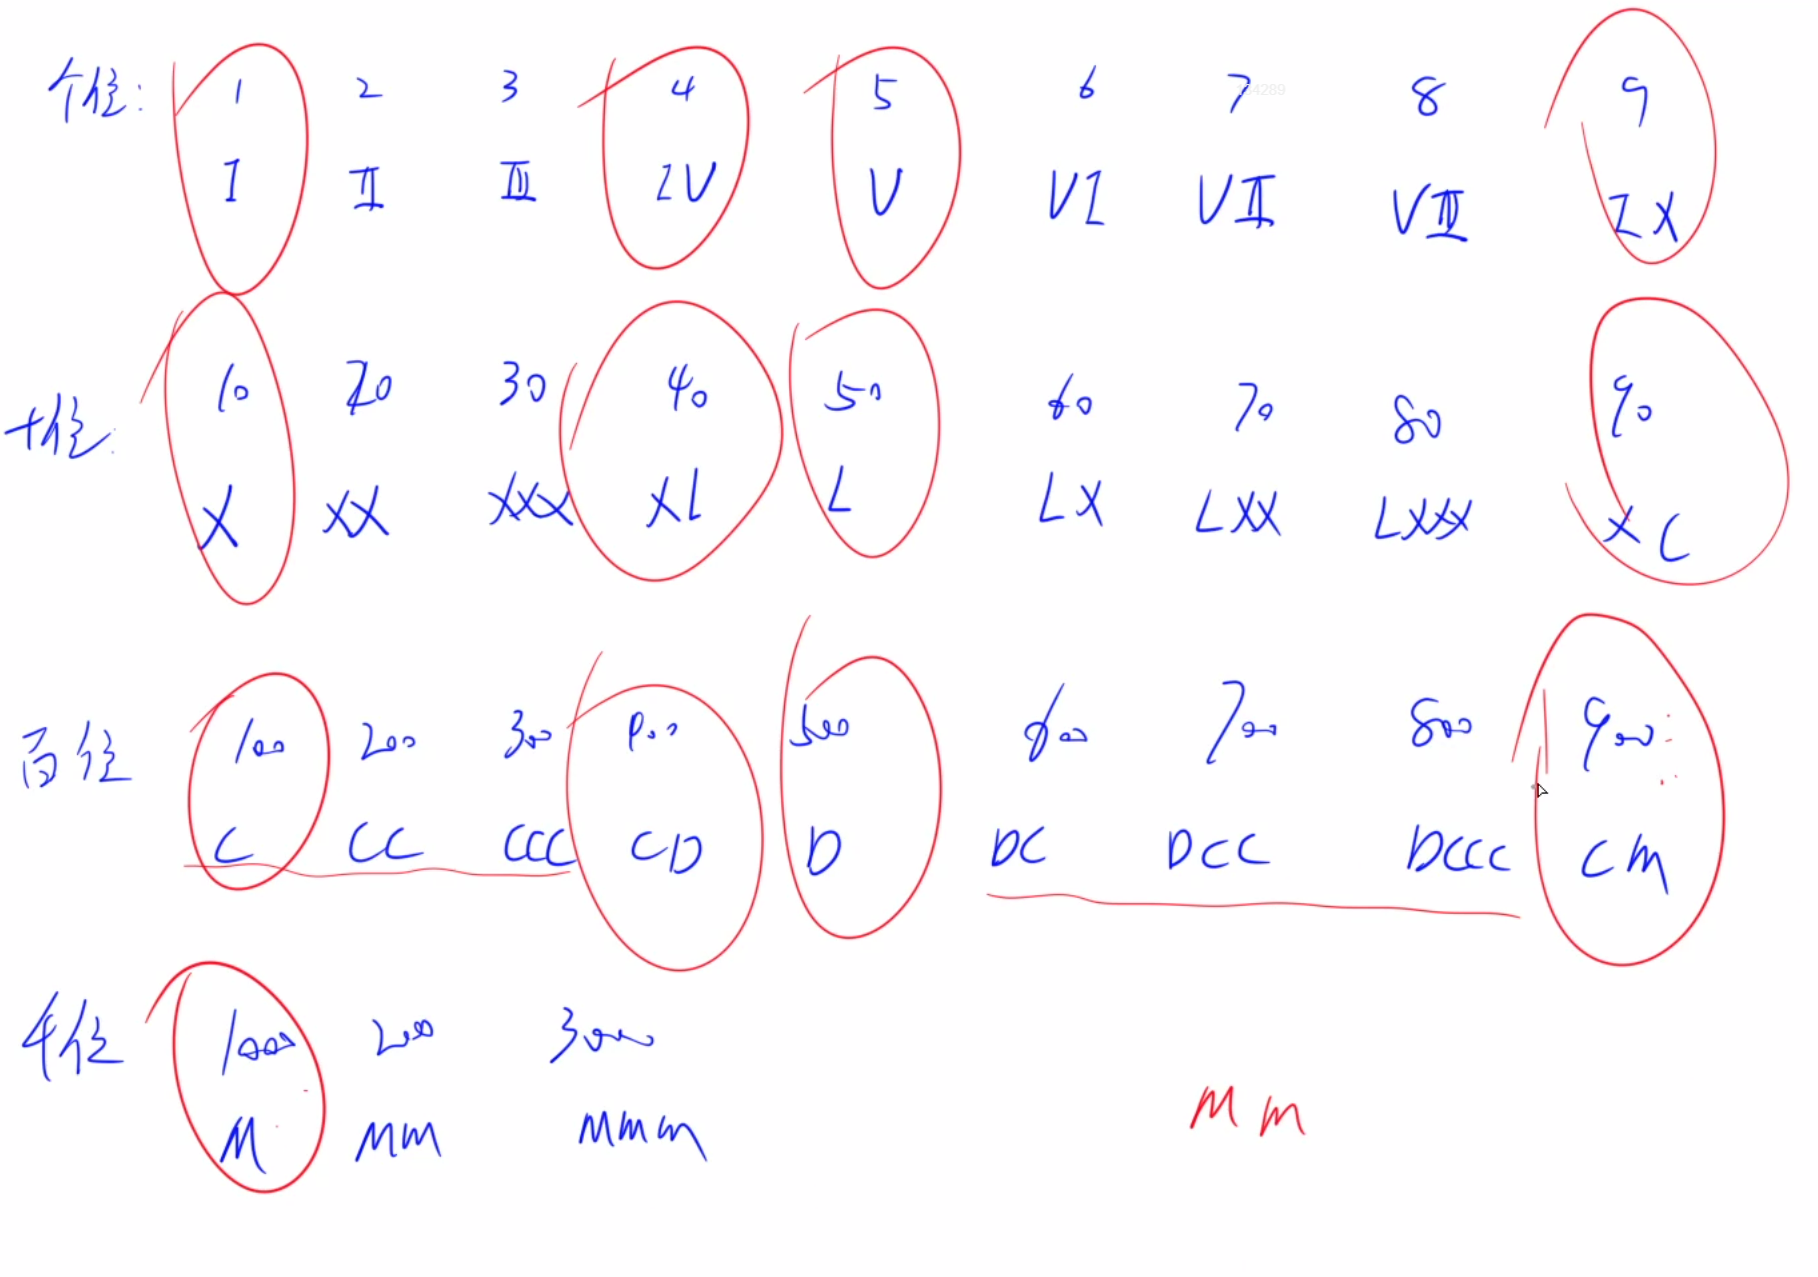 个位: 1 2 3 4 5 6 7 8 9
I II III IV V VI VII VIII IX
十位: 10 20 30 40 50 60 70 80 90
X XX XXX XL L LX LXX LXXX XC
百位 100 200 300 400 500 600 700 800 900
C CC CCC CD D DC DCC DCCC CM
千位 1000 2000 3000
M MM MMM
MM